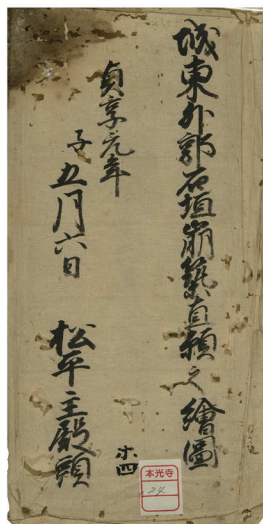 城東外郭石垣崩築直願之繪圖
貞享元年
子五月六日
松平主殿頭
ホ四
本光寺
24